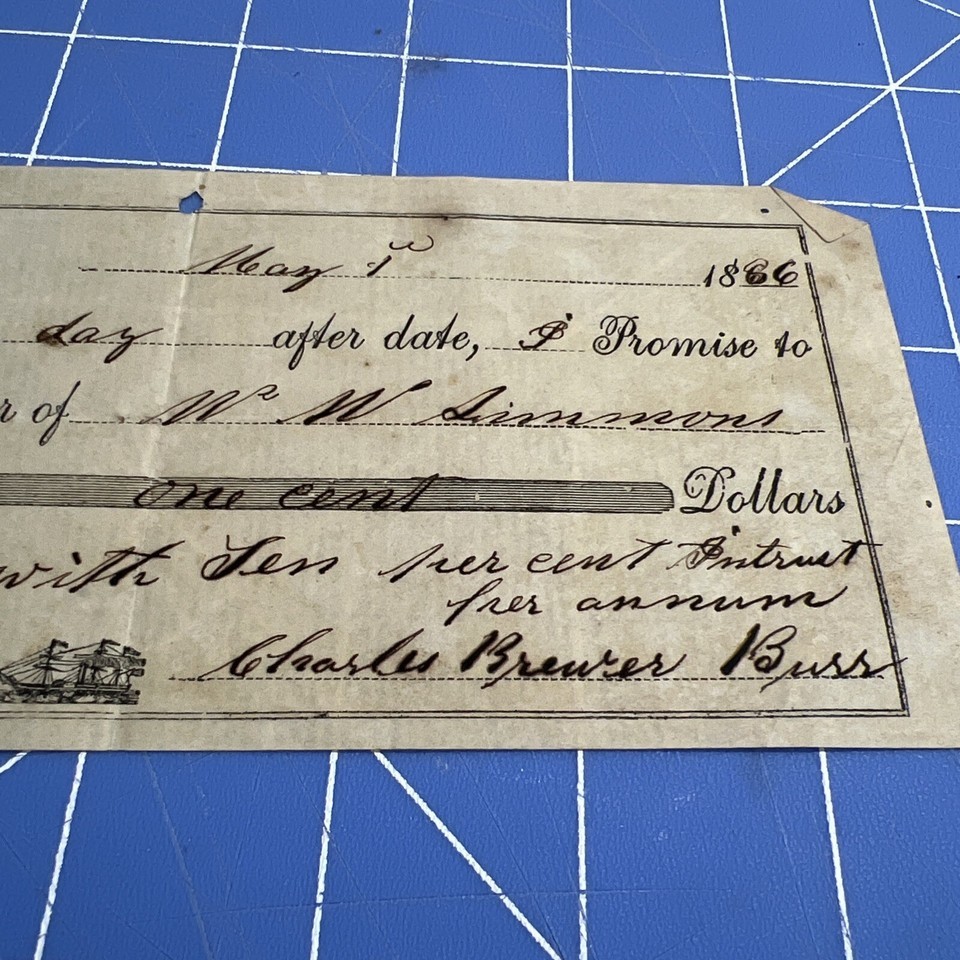 May 1st 1866
day after date, I Promise to
r of Wm W Simmons
one cent Dollars
with Ten per cent Intrust
per annum
Charles Brewer Burr